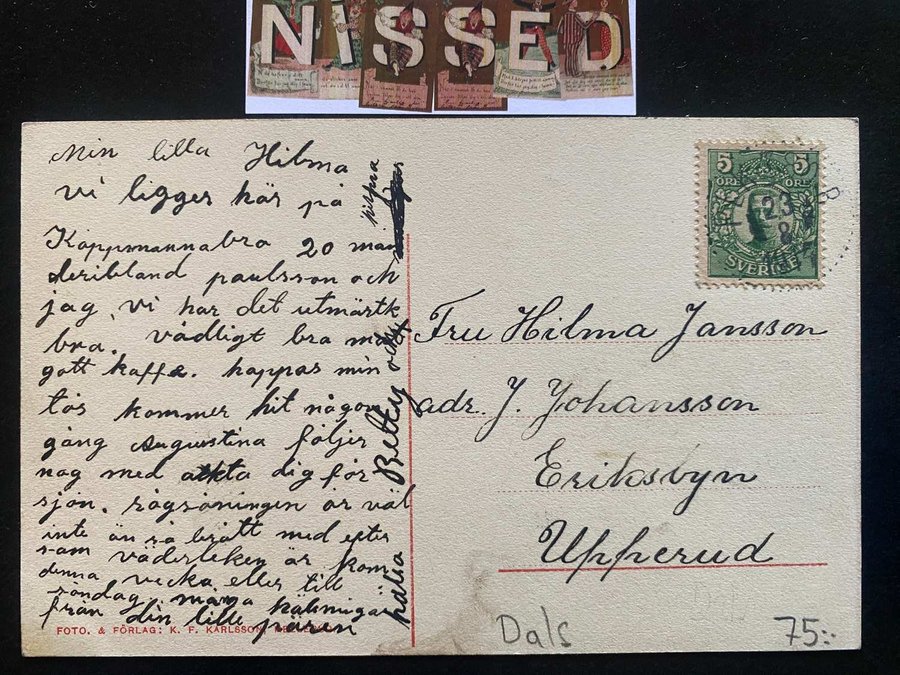 NISSED
Min lilla Hilma
vi ligger här på
Köppmannabro 20 man
deribland paulsson och
jag, vi har det utmärtk
bra. vådligt bra mat
gott kaffe. hoppas min
tös kommer hit någon
gång Augustina följer
nog med akta dig för
sjön. rågsöningen är väl
inte än så brått med efter
som väderleken är kom
denna vecka eller till
söndag. många hälsningar
från din lille
hälsa Betty och
hilma
5 5
ÖRE ÖRE
SVERIGE
23
8
Fru Hilma Jansson
adr. J. Johansson
Eriksbyn
Upperud
FOTO. & FÖRLAG: K. F. KARLSSON,
Dals
75:-